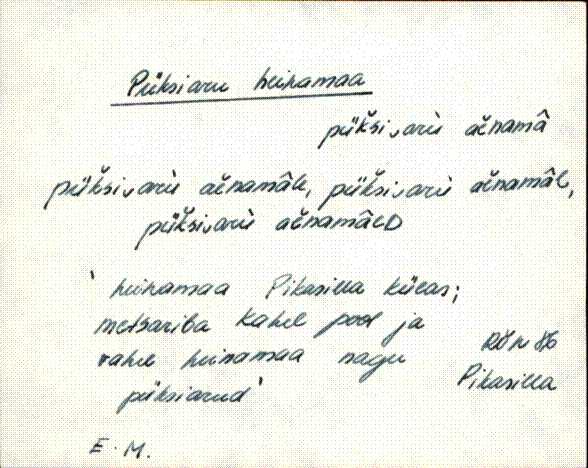 Püksiaru heinamaa
püḱsi‿arù aĕnamâ
püḱsi‿arù aĕnamâle, püḱsi‿arù aĕnamâl,
püḱsi‿arù aĕnamâlD
' heinamaa Pikasilla külas;
metsariba kahel pool ja
vahel heinamaa nagu
püksiarud'
Rõn 86
Pikasilla
E. M.